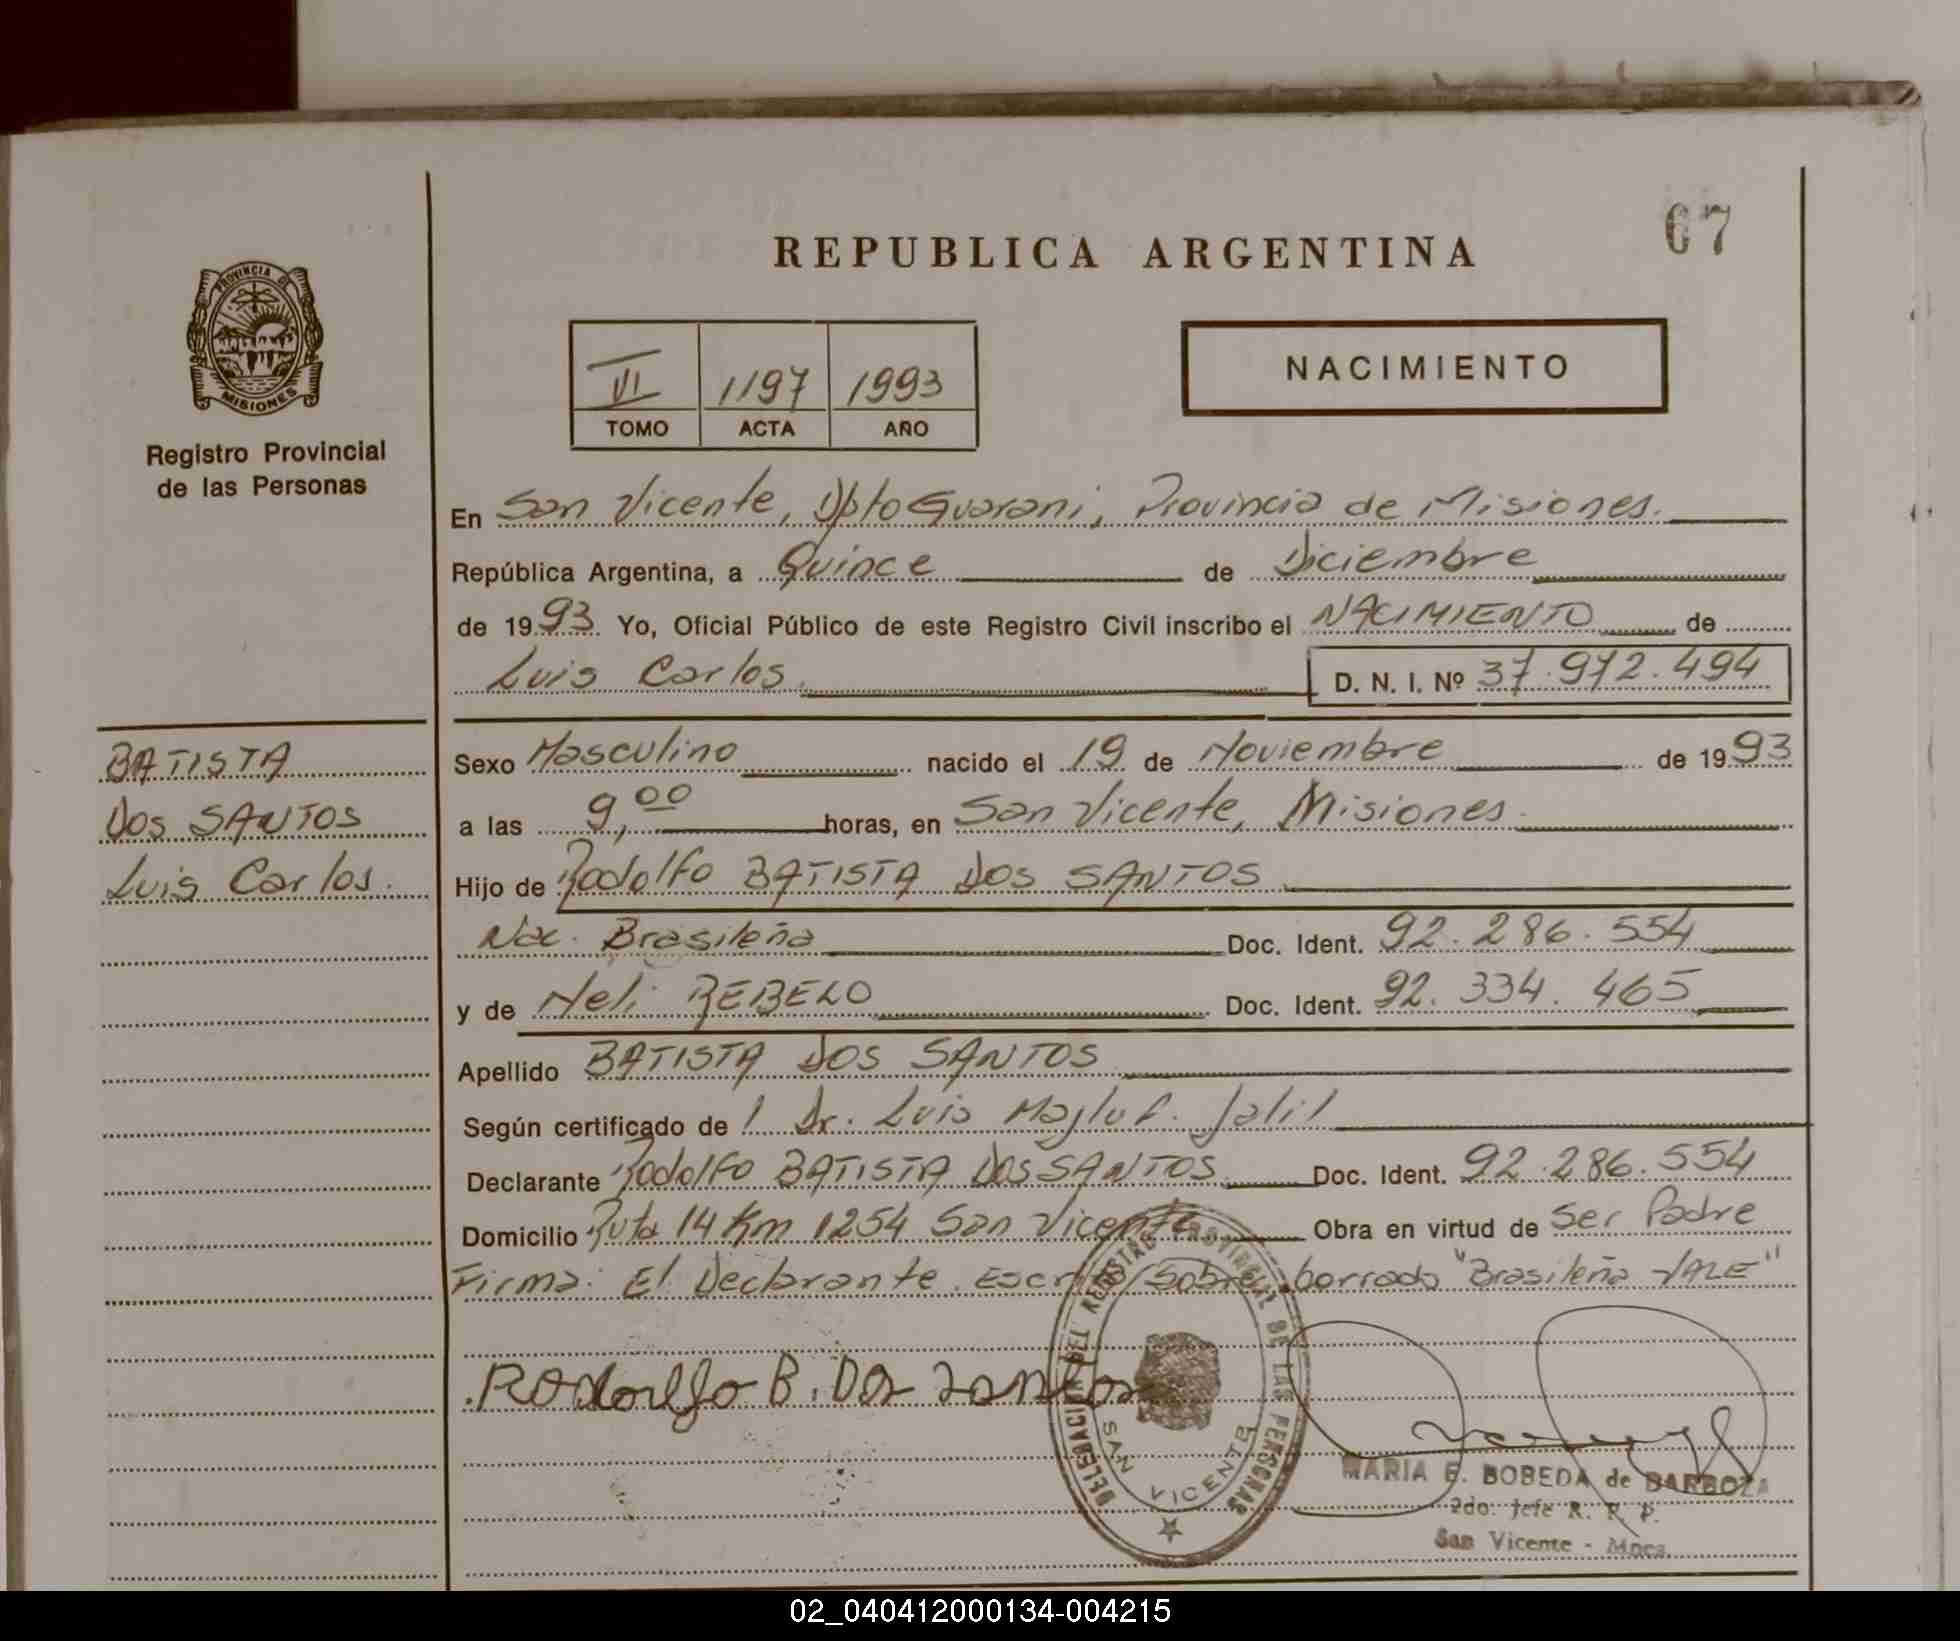 67
REPUBLICA ARGENTINA
PROVINCIA DE
MISIONES
Registro Provincial
de las Personas
VI 1197 1993
TOMO ACTA AÑO
NACIMIENTO
En San Vicente, Dpto Guarani, Provincia de Misiones.
República Argentina, a Quince de Diciembre
de 1993 Yo, Oficial Público de este Registro Civil inscribo el NACIMIENTO de
Luis Carlos D. N. I. Nº 37.972.494
BATISTA
DOS SANTOS
Luis Carlos.
Sexo Masculino nacido el 19 de Noviembre de 1993
a las 9,00 horas, en San Vicente, Misiones
Hijo de Rodolfo BATISTA DOS SANTOS
Nac. Brasileña Doc. Ident. 92.286.554
y de Neli REBELO Doc. Ident. 92.334.465
Apellido BATISTA DOS SANTOS
Según certificado de l Dr. Luis Majluf Jalil
Declarante Rodolfo BATISTA DOS SANTOS Doc. Ident. 92.286.554
Domicilio Ruta 14 Km 1254 San Vicente Obra en virtud de Ser Padre
Firma: El Declarante. Escrito Sobre borrado "Brasileña VALE"
Rodolfo B. Dos Santos
DELEGACION DEL REGISTRO PROVINCIAL DE LAS PERSONAS
SAN VICENTE
MARIA E. BOBEDA de BARBOZA
2do. Jefe R. P. P.
San Vicente - Mnes.
02_040412000134-004215